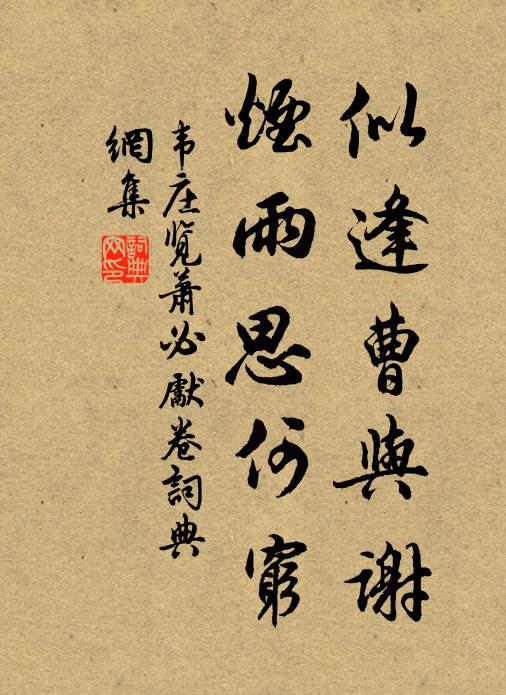 似逢曹與謝
煙雨思何窮
韦庄览蕭必獻卷詞典
網集
詞典
网印